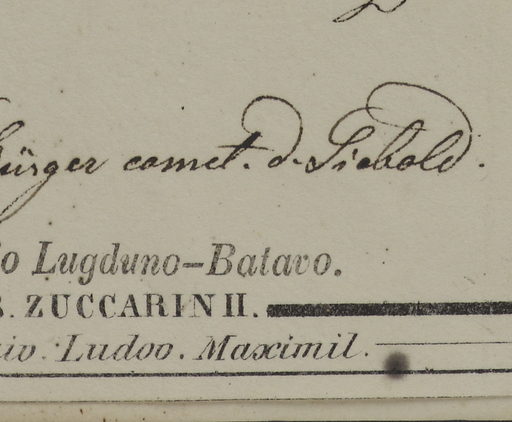 ürger comet. d. Siebold.
o Lugduno-Batavo.
. ZUCCARINII.
iv. Ludov. Maximil.